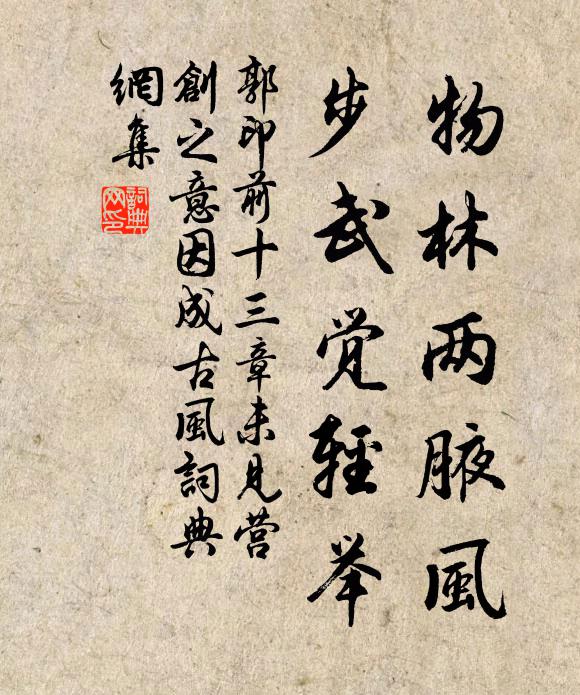 物林两腋風
步武覺輕举
郭印前十三章未見营
創之意因成古風詞典
網集
詞典網印